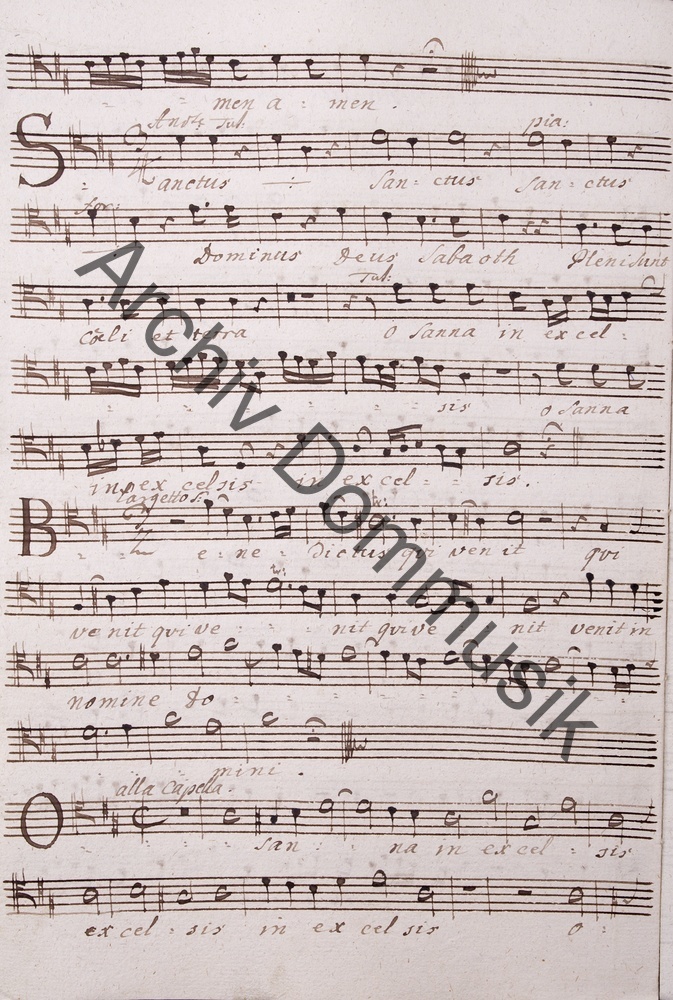 men a : men .
And.te Tut:
pia:
Sanctus ÷ San - ctus San = ctus
for:
Dominus Deus Sabaoth Pleni sunt
Tut:
Cœli et terra O Sanna in excel :
sis O Sanna
in excelsis in excel - sis .
Largetto S:
Bene - Dictus qvi venit qvi
venit qvi ve - nit qvi ve nit venit in
nomine Do
mini .
alla Capella.
O San : na in excel = sis
excel = sis in excelsis O :
Archiv Dommusik